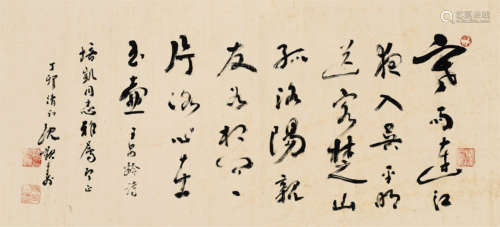 寒雨连江
夜入吴平明
送客楚山
孤洛阳亲
友如相问一
片冰心在
玉壶 王昌龄诗
培凯同志雅属即正
丁卯清和沈觐寿